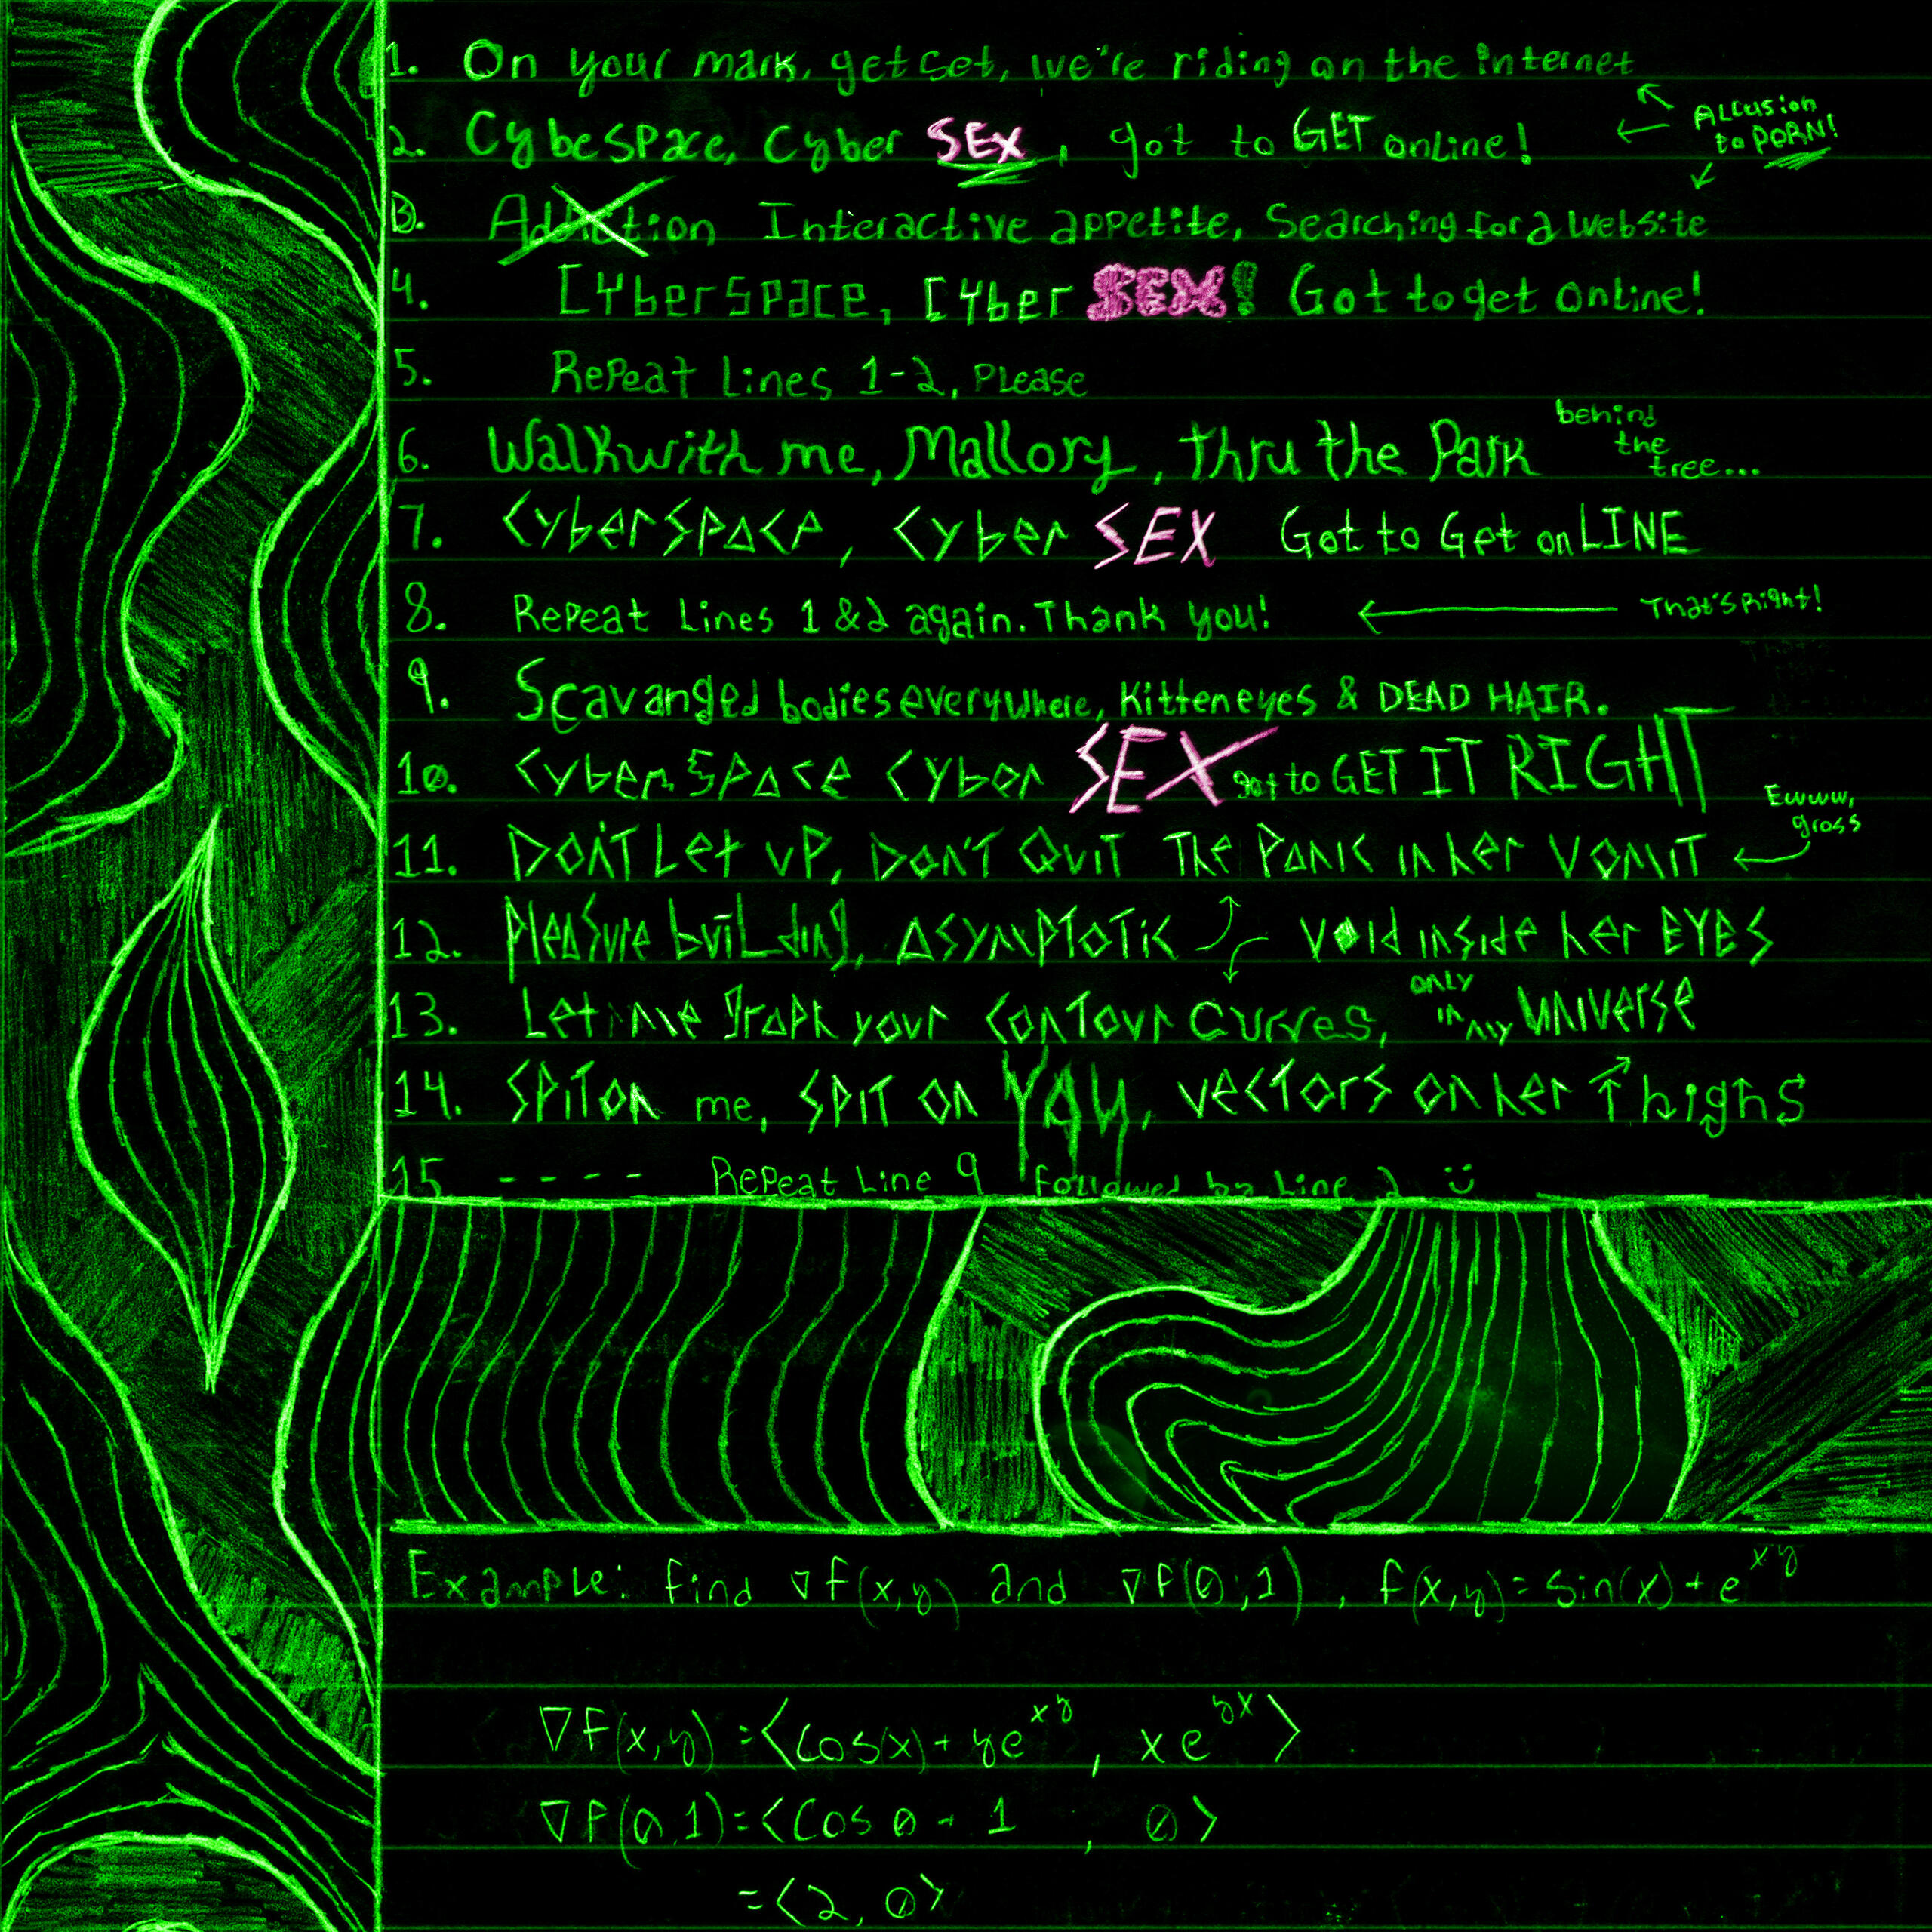 1. On your mark, get set, we're riding on the internet
2. Cybespace, Cyber SEX, got to GET online!
Allusion
to PORN!
3. Addiction Interactive appetite, Searching for a website
4. Cyberspace, Cyber SEX! Got to get online!
5. Repeat Lines 1-2, Please
6. Walk with me, Mallory, thru the Park behind the tree...
7. CyberSpace, Cyber SEX Got to Get onLINE
8. Repeat Lines 1 & 2 again. Thank you! That's Right!
9. Scavanged bodies everywhere, Kitten eyes & DEAD HAIR.
10. CyberSpace Cyber SEX got to GET IT RIGHT
11. Don't Let up, Don't Quit The Panic in her VOMIT
Ewww,
gross
12. Pleasure building, Asymptotic void inside her EYES
13. Let me graph your contour curves, only in my UNIVERSE
14. Spit on me, spit on YOU, vectors on her thighs
15 - - - - Repeat Line 9 followed by Line 2 :)
Example: Find ∇f(x,y) and ∇f(0,1), f(x,y) = sin(x) + e^xy
∇f(x,y) = <cos(x) + ye^xy, xe^yx>
∇f(0,1) = <cos 0 + 1, 0>
= <2, 0>